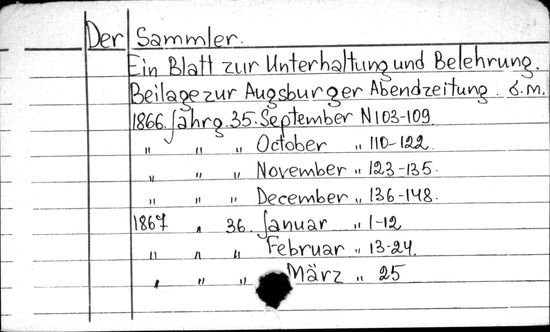 Der Sammler.
Ein Blatt zur Unterhaltung und Belehrung.
Beilage zur Augsburger Abendzeitung. 8.m.
1866. Jahrg. 35. September N103-109.
„ „ „ October „ 110-122.
„ „ „ November „ 123-135.
„ „ „ December „ 136-148.
1867 „ 36. Januar „ 1-12
„ „ „ Februar „ 13-24.
„ „ „ März „ 25